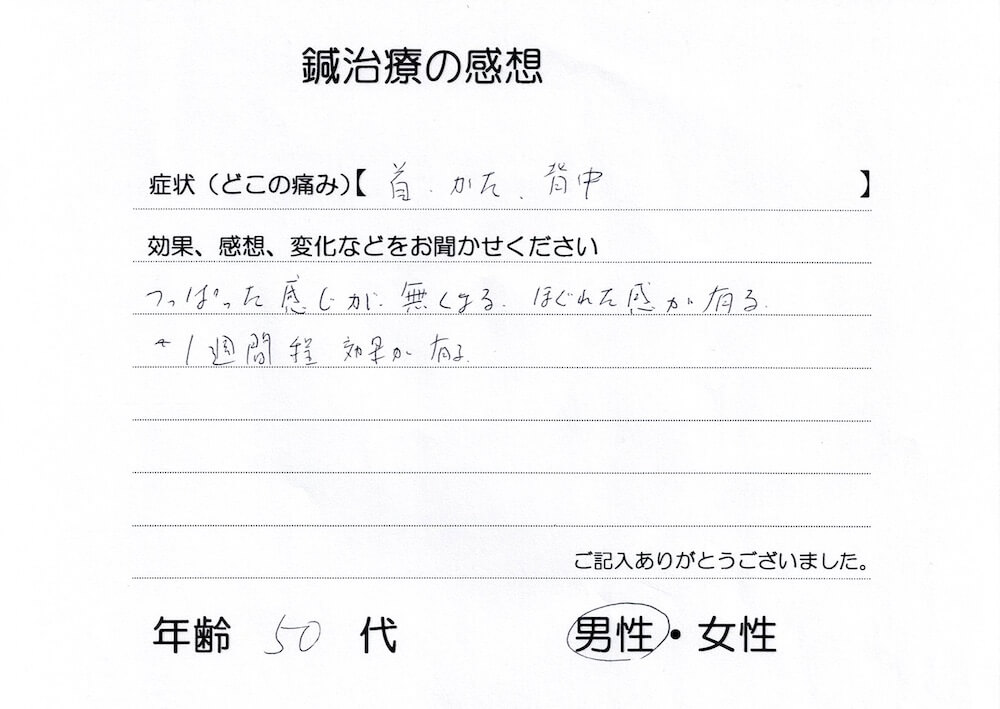 鍼治療の感想
症状（どこの痛み）【 首、かた、背中 】
効果、感想、変化などをお聞かせください
つっぱった感じが無くなる、ほぐれた感が有る。
*1週間程効果が有る。
ご記入ありがとうございました。
年齢 50 代 男性・女性